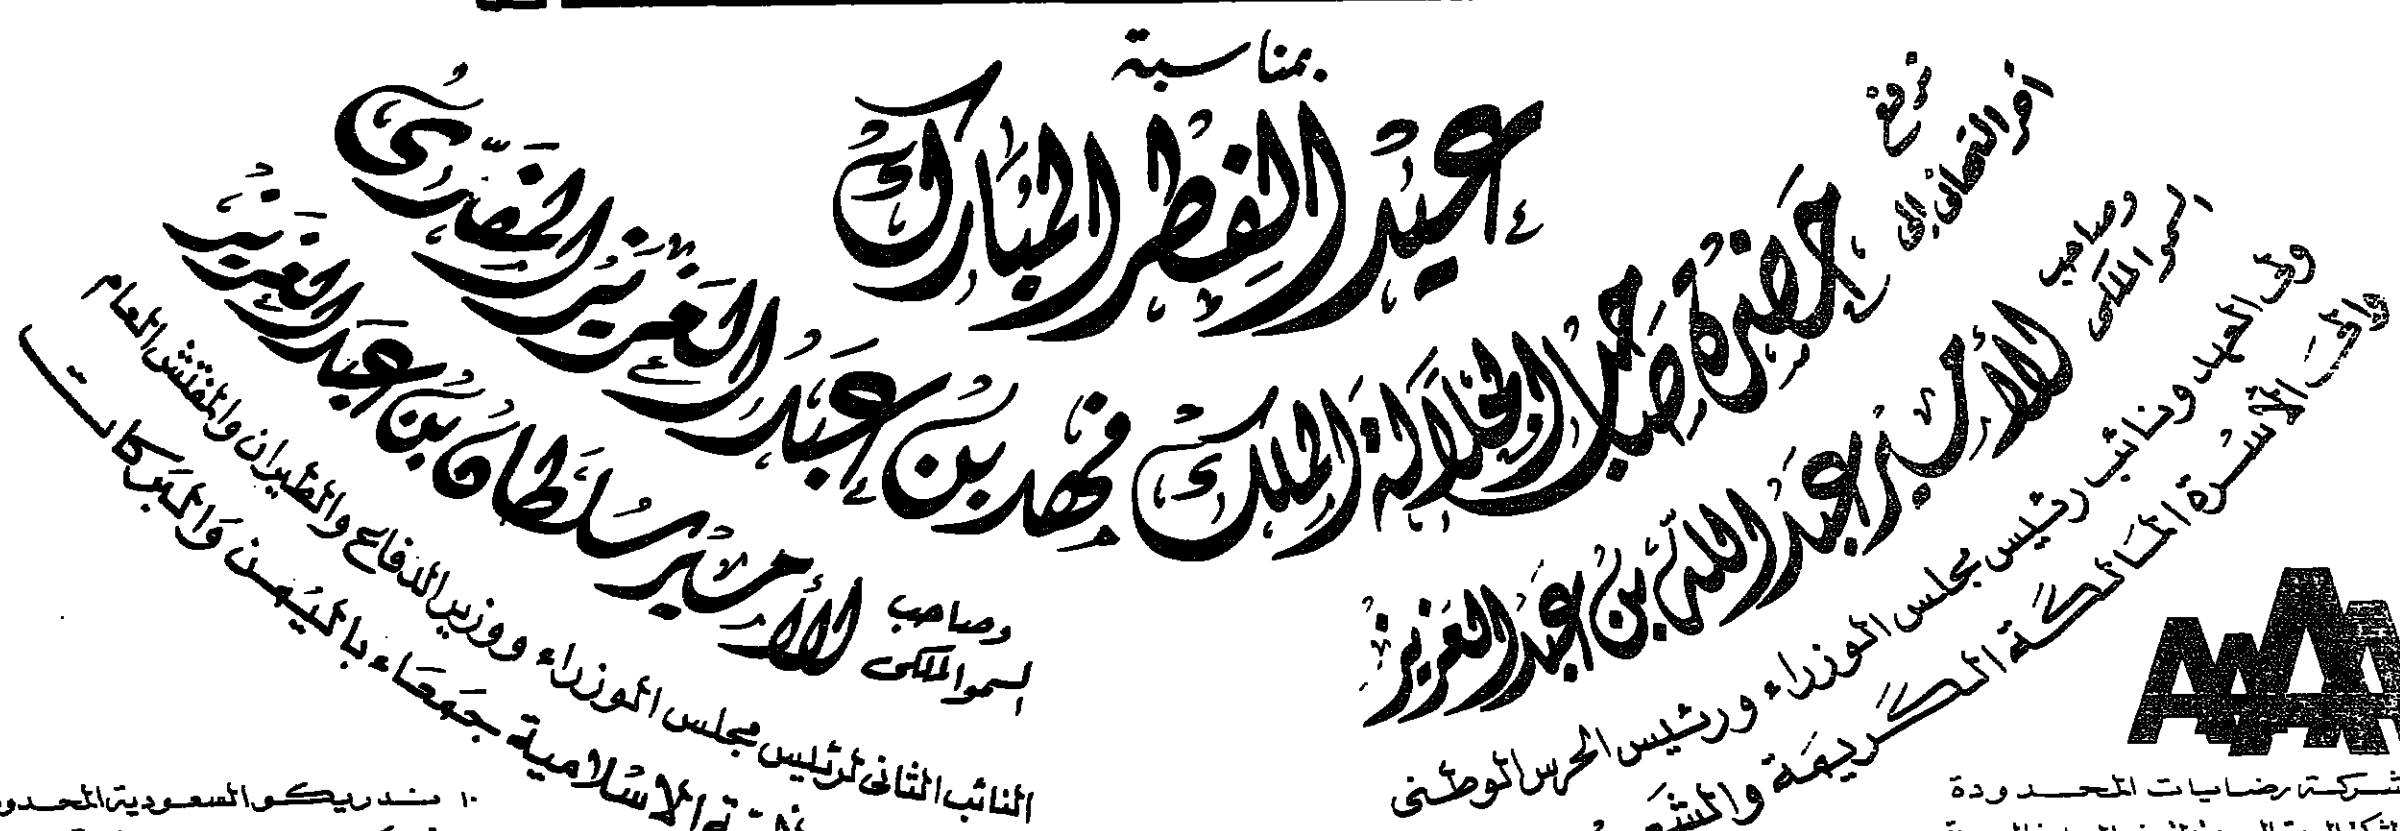 بمناسبة
عيد الفطر المبارك
ترفع
أحر التهاني إلى
حضرة صاحب الجلالة الملك فهد بن عبد العزيز المفدى
وصاحب
السمو الملكي
الأمير عبد الله بن عبد العزيز
ولي العهد ونائب رئيس مجلس الوزراء ورئيس الحرس الوطني
وصاحب
السمو الملكي
الأمير سلطان بن عبد العزيز
النائب الثاني لرئيس مجلس الوزراء ووزير الدفاع والطيران والمفتش العام
الأسرة المالكة الكريمة والشعب
الاسلامية جمعاء باليمن والبركات
شركة رضايات المحدودة
١٠ سندريكو السعودية المحدو